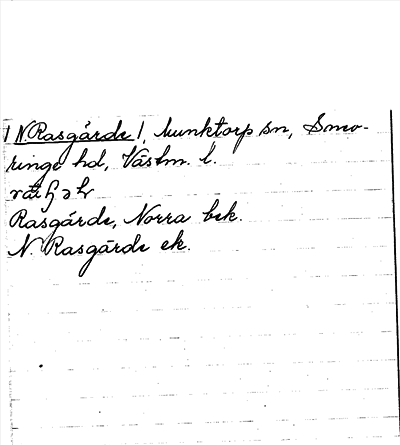 / N. Rasgärde /, Munktorp sn, Snev-
ringe hd, Västm. l.
Rasgärde, Norra bek.
N. Rasgärde ek.